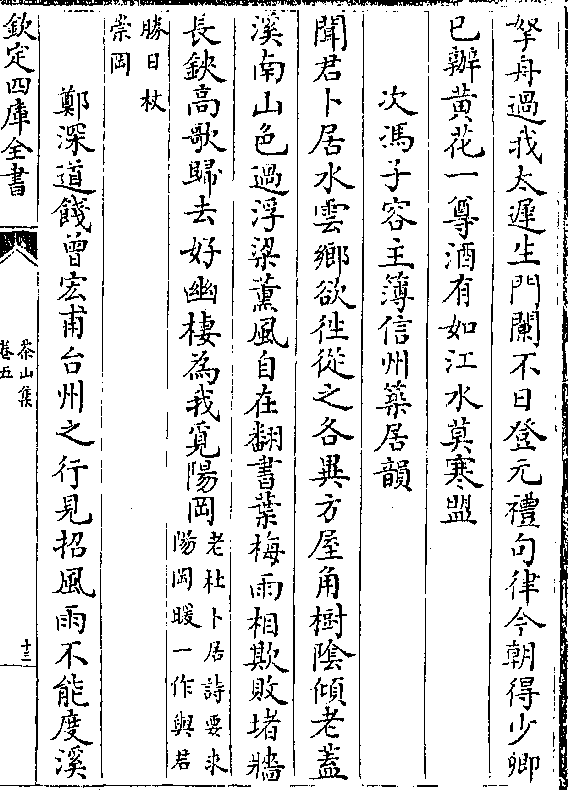 拏舟過我太遲生門闌不日登元禮句律今朝得少卿
已辦黃花一尊酒有如江水莫寒盟
次馮子容主簿信州築居韻
聞君卜居水雲鄉欲徃從之各異方屋角樹陰傾老蓋
溪南山色過浮梁薰風自在翻書葉梅雨相欺敗堵牆
長鋏高歌歸去好幽棲為我覓陽岡老杜卜居詩要求
陽岡暖一作與君
勝日杖
崇岡
鄭深道餞曾宏甫台州之行見招風雨不能度溪
欽定四庫全書
茶山集
卷五
十三